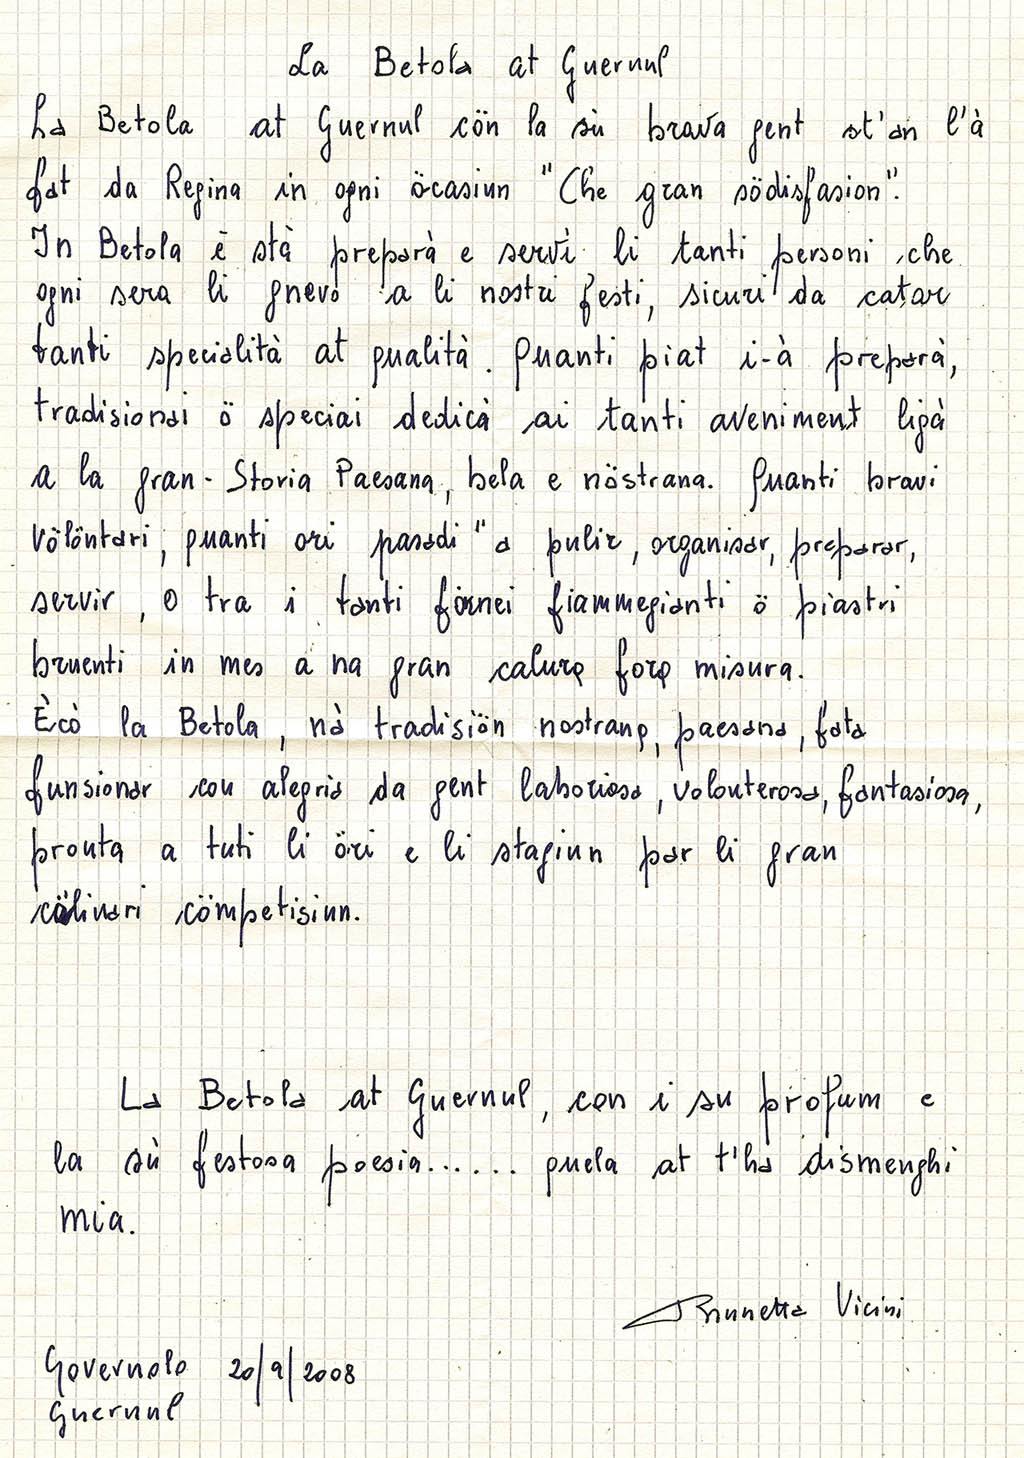 La Betola at Guernul
La Betola at Guernul cön la sù brava gent st'an l'à
fat da Regina in ogni öcasiun "Che gran södisfasion".
In Betola è stà preparà e servì li tanti personi che
ogni sera li gnevo a li nostri festi, sicuri da catar
tanti specialità at qualità. Quanti piat i-à preparà,
tradisionai ö speciai dedicà ai tanti aveniment ligà
a la gran Storia Paesana, bela e nöstrana. Quanti bravi
völöntari, quanti ori pasadi" a pulir, organisar, preparar,
servir, o tra i tanti förnei fiammegianti ö piastri
bruenti in mes a na gran calura fora misura.
Ècò la Betola, nà tradisiön nostrana, paesana, fata
funsionar con alegria da gent laboriosa, volonterosa, fantasiosa,
pronta a tuti li öri e li stagiun par li gran
cölinari cömpetisiun.
La Betola at Guernul, con i su profum e
la sù festosa poesia...... quela at t'ha dismenghi
mia.
Brunetta Vicini
Governolo 20/9/2008
Guernul